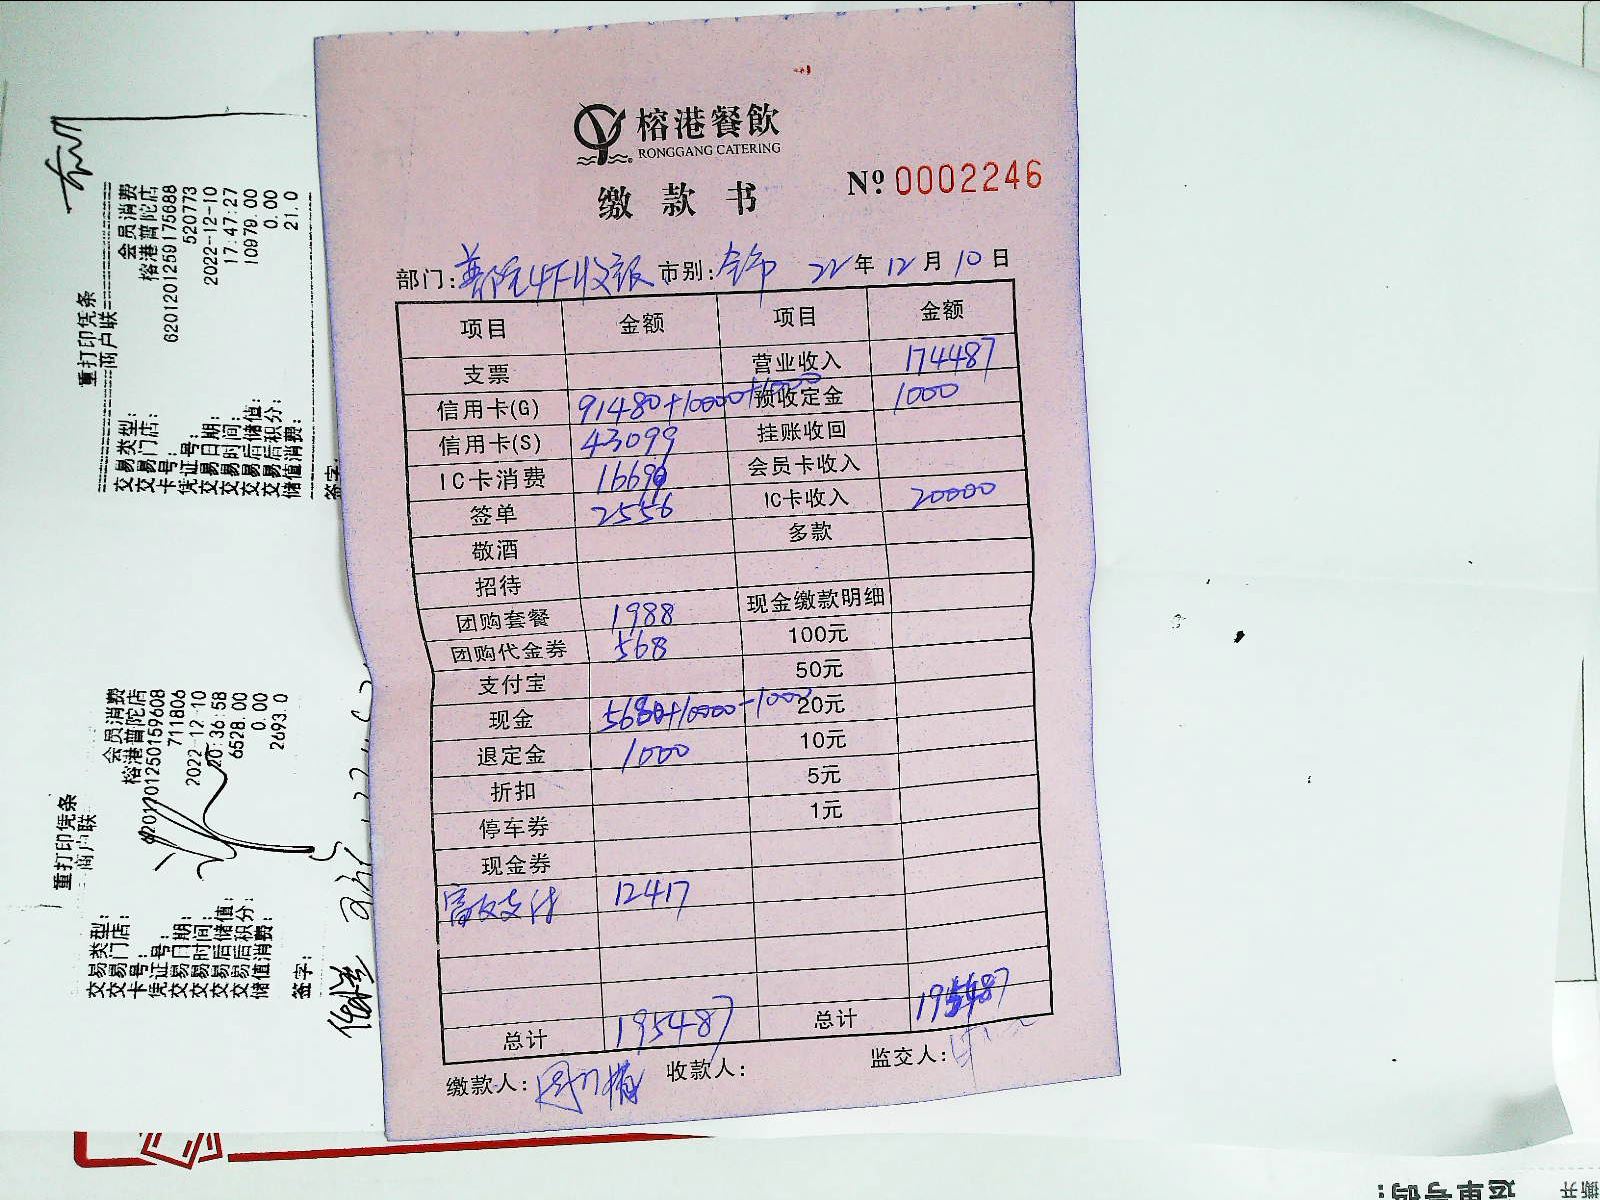 榕港餐飲
RONGGANG CATERING
缴款书
Nº 0002246
部门: 普陀4F收银 市别: 全市 22年12月10日
项目 金额 项目 金额
支票 营业收入 174487
信用卡(G) 91480+10000+1000 预收定金 1000
信用卡(S) 43099 挂账收回
IC卡消费 16699 会员卡收入
签单 2556 IC卡收入 20000
敬酒 多款
招待
团购套餐 1988 现金缴款明细
团购代金券 568 100元
支付宝 50元
现金 5680+10000-1000 20元
退定金 1000 10元
折扣 5元
停车券 1元
现金券
12417
总计 195487 总计 195487
缴款人: 收款人: 监交人:
重打印凭条
商户联
交易类型: 会员消费
交易门店: 榕港普陀店
卡号: 6201201259175688
凭证号: 520773
交易日期: 2022-12-10
交易时间: 17:47:27
交易后储值: 10979.00
交易后积分: 0.00
储值消费: 21.0
签字:
重打印凭条
商户联
交易类型: 会员消费
交易门店: 榕港普陀店
卡号: 6201201250159608
凭证号: 711806
交易日期: 2022-12-10
交易时间: 20:36:58
交易后储值: 6528.00
交易后积分: 0.00
储值消费: 2693.0
签字:
运单号码:
撕开